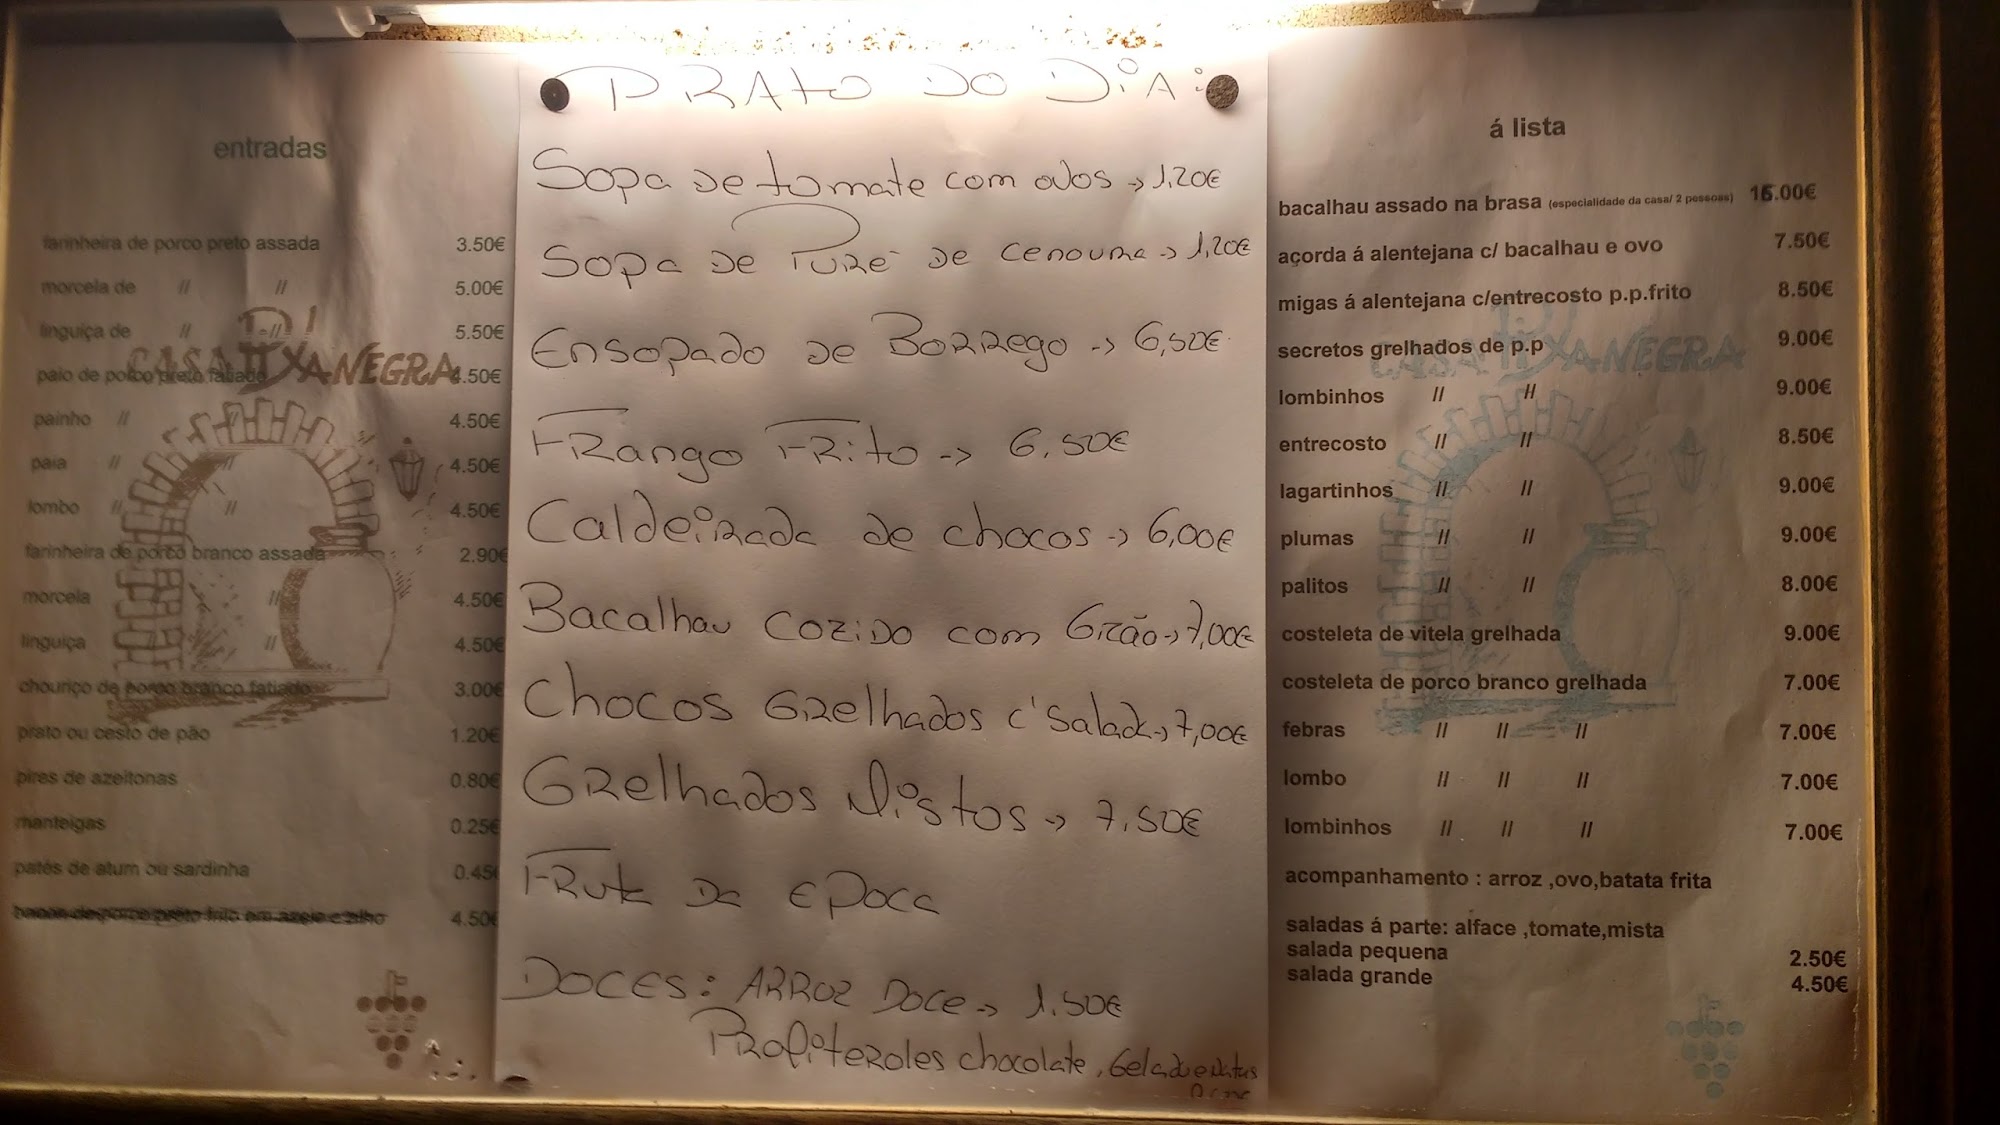 entradas
farinheira de porco preto assada 3.50€
morcela de // // 5.00€
linguiça de // // 5.50€
paio de porco preto fatiado 4.50€
painho // 4.50€
paia // 4.50€
lombo // // 4.50€
farinheira de porco branco assada 2.90€
morcela // 4.50€
linguiça // 4.50€
chouriço de porco branco fatiado 3.00€
prato ou cesto de pão 1.20€
pires de azeitonas 0.80€
manteigas 0.25€
patés de atum ou sardinha 0.45€
4.50€
CASA TIXA NEGRA
PRATO DO DIA:
Sopa de tomate com ovos → 1,20€
Sopa de Puré de cenoura → 1,20€
Ensopado de Borrego → 6,50€
Frango Frito → 6.50€
Caldeirada de chocos → 6,00€
Bacalhau cozido com Grão → 7,00€
Chocos Grelhados c' Salada → 7,00€
Grelhados Mistos → 7.50€
Fruta da epoca
DOCES: ARROZ DOCE → 1.50€
Profiteroles chocolate, Gelado e
á lista
bacalhau assado na brasa (especialidade da casa/ 2 pessoas) 15.00€
açorda á alentejana c/ bacalhau e ovo 7.50€
migas á alentejana c/entrecosto p.p.frito 8.50€
secretos grelhados de p.p 9.00€
lombinhos // // 9.00€
entrecosto // // 8.50€
lagartinhos // // 9.00€
plumas // // 9.00€
palitos // // 8.00€
costeleta de vitela grelhada 9.00€
costeleta de porco branco grelhada 7.00€
febras // // // 7.00€
lombo // // // 7.00€
lombinhos // // // 7.00€
acompanhamento : arroz ,ovo,batata frita
saladas á parte: alface ,tomate,mista
salada pequena 2.50€
salada grande 4.50€
CASA TIXA NEGRA